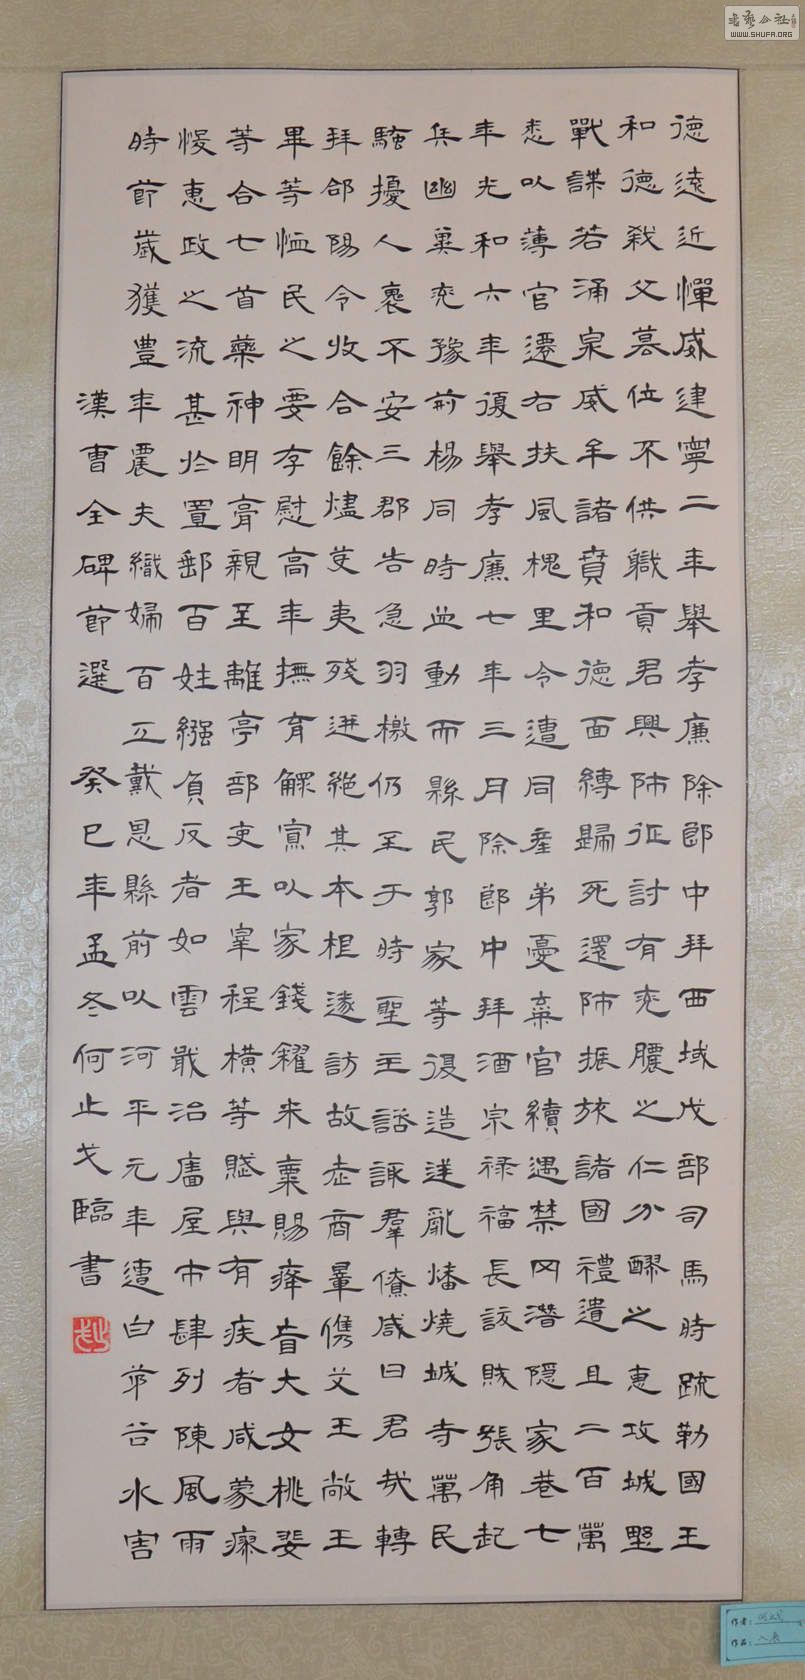 德遠近憚威建寧二年舉孝廉除郎中拜西域戊部司馬時疏勒國王
和德弒父篡位不供職貢君興師征討有兗膿之仁分醪之惠攻城野
戰謀若涌泉威牟諸賁和德面縛歸死還師振旅諸國禮遺且二百萬
悉以薄官遷右扶風槐里令遭同產弟憂棄官續遇禁网潛隱家巷七
年光和六年復舉孝廉七年三月除郎中拜酒泉祿福長訞賊張角起
兵幽冀兗豫荊楊同時並動而縣民郭家等復造逆亂燔燒城寺萬民
騷擾人裹不安三郡告急羽檄仍至于時聖主諮諏羣僚咸曰君哉轉
拜郃陽令收合餘燼芟夷殘迸絕其本根遂訪故老商暈儁艾王敞王
畢等恤民之要存慰高年撫育鰥寡以家錢糴米粟賜癃盲大女桃斐
等合七首藥神明膏親至離亭部吏王宰程橫等賦與有疾者咸蒙瘳
悛惠政之流甚於置郵百姓繈負反者如雲戢治廧屋市肆列陳風雨
時節歲獲豐年農夫織婦百工戴恩縣前以河平元年遭白茅谷水害
漢曹全碑節選 癸巳年孟冬何止戈臨書
WWW.SHUFA.ORG
作者:
作品: